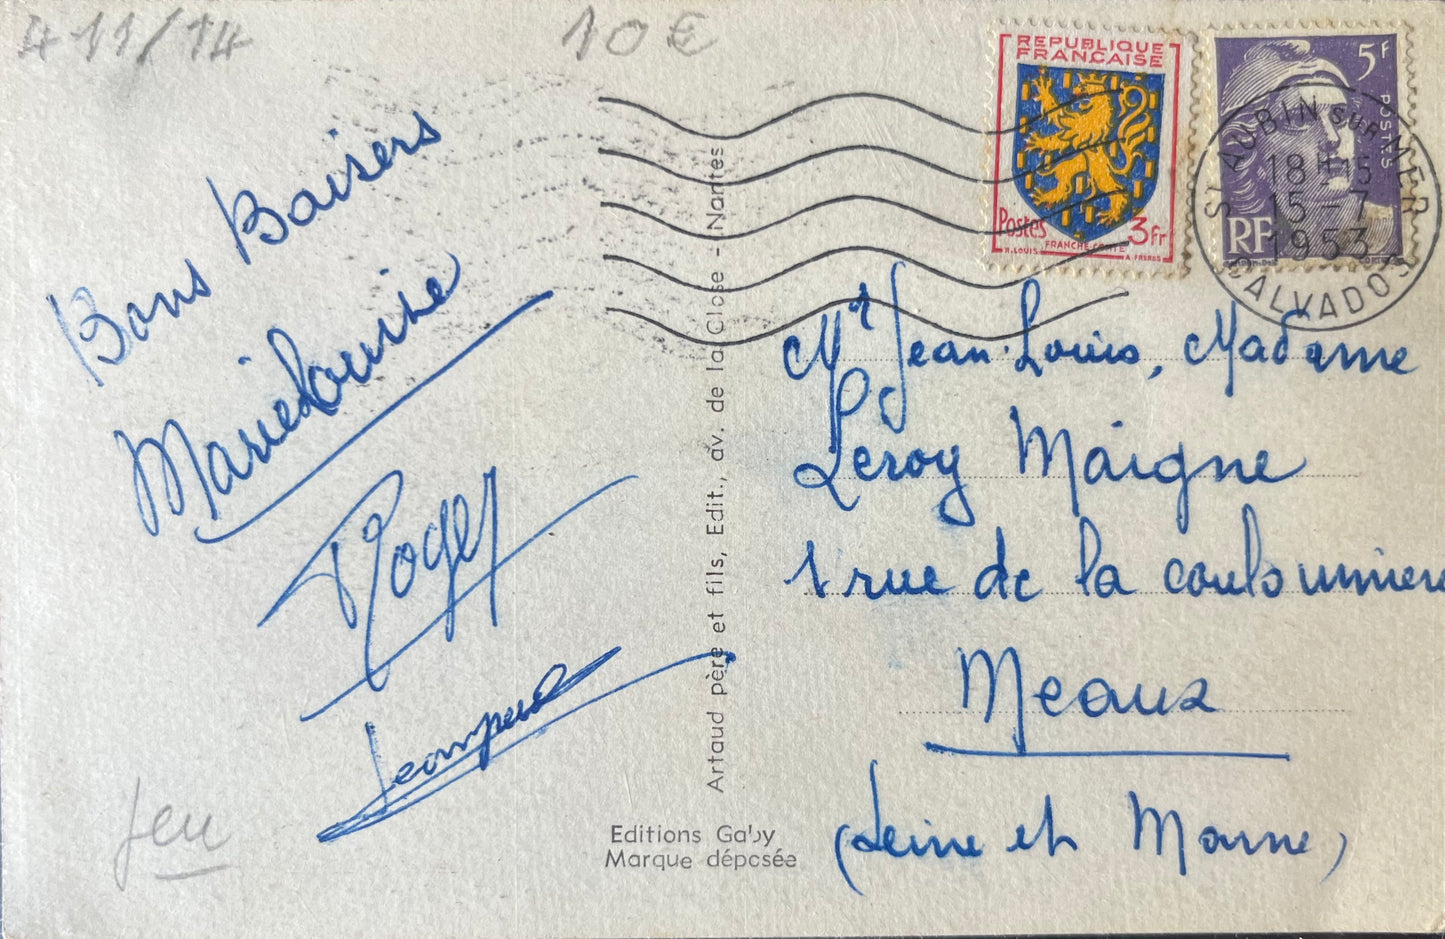 411/14
10€
Bons Baisers
Marielouise
Roger
Jeu
Artaud père et fils, Edit., av. de la Close - Nantes
Editions Gaby
Marque déposée
REPUBLIQUE
FRANÇAISE
Postes
3Fr
R. LOUIS
FRANCHE-COMTÉ
A. FRERES
5F
POSTES
RF
ST AUBIN SUR MER
18H15
15-7
1953
CALVADOS
Mr Jean-Louis, Madame
Leroy Maigne
1 rue de la
Meaux
(Seine et Marne)